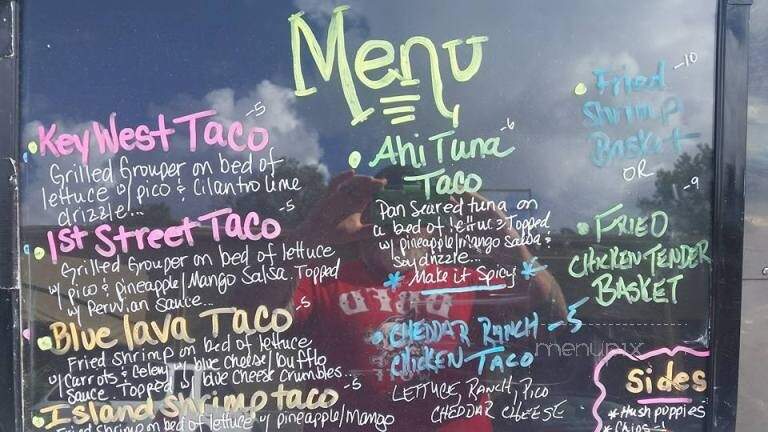 Menu
Key West Taco -5
Grilled Grouper on bed of
lettuce w/ pico & Cilantro lime
drizzle...
1st Street Taco -5
Grilled Grouper on bed of lettuce
w/ pico & pineapple/Mango Salsa. Topped
w/ Peruvian Sauce...
Blue lava Taco -5
Fried shrimp on bed of lettuce
w/ Carrots & Celery w/ blue cheese/bufflo
Sauce. Topped blue Cheese Crumbles...
Island shrimp taco -5
Fried shrimp on bed of lettuce w/ pineapple/mango
Ahi Tuna -6
Taco
Pan Seared tuna on
a bed of lettuce Topped
w/ pineapple/mango Salsa &
Soy drizzle...
* Make it Spicy *
Cheddar Ranch -5
Chicken Taco
Lettuce, Ranch, Pico
Cheddar Cheese
Fried -10
Shrimp
Basket
OR
-9
Fried
Chicken Tender
Basket
menupix
Sides
* Hush puppies
* Chips -1